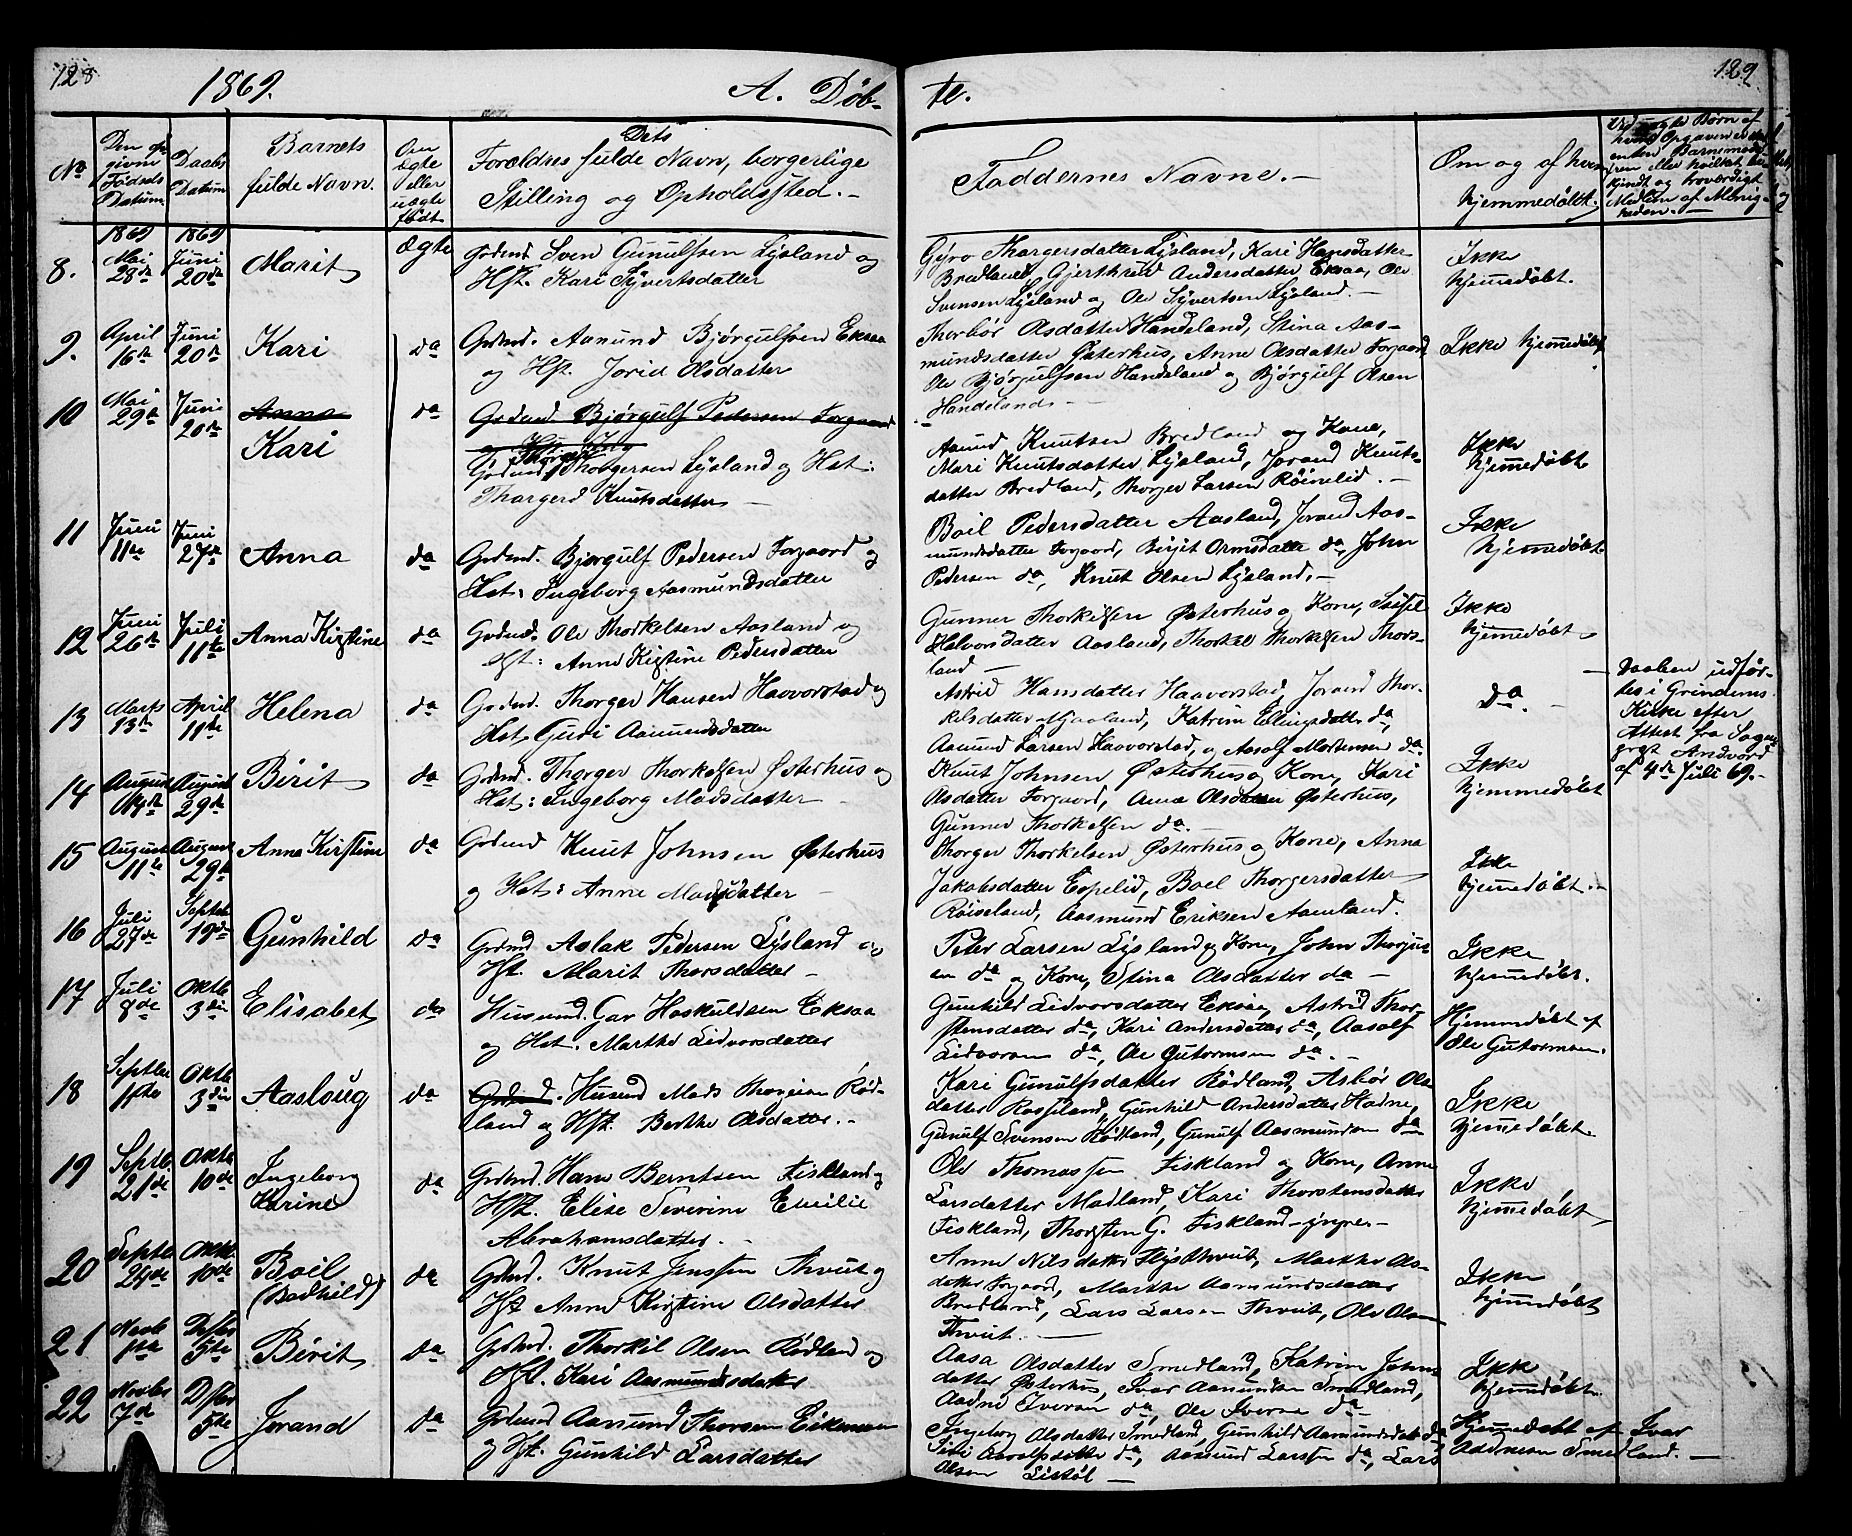 128
1869.
A. Døb-
te.
129
No
Den op-
givne
Fødsels
Datum
Daabs
Datum
Barnets
fulde Navn.
Om
ægte
eller
uægte
født.
Dets
Forældres fulde Navn, borgerlige
Stilling og Opholdssted. -
Faddernes Navne. -
Om og af hvem
hjemmedøbt.
Ved uægte Børn af
hvem Opgaven er
enten Barnemod-
ren eller hvilket be-
kjendt og troværdigt
Medlem af Menig-
heden. -
8.
1869
Mai
28de
1869
Juni
20de
Marit
Ægte
Grdmd Sven Gunulfsen Lysland og
Hst. Kari Syvertsdatter
Gyro Thorgersdatter Lysland, Kari Hansdatter
Bredland, Gjerthrud Andersdatter Eksaa, Ole
Svensen Lysland og Ole Syvertsen Lysland. -
Ikke
hjemmedøbt.
9.
April
16de
Juni
20de
Kari
da
Grdmd. Aamund Bjørgulfsen Eksaa
og Hst. Jorid Olsdatter
Thorbør Olsdatter Handeland, Stina Aas-
mundsdatter Østerhus, Anne Olsdatter Torgaard,
Ole Bjørgulfsen Handeland og Bjørgulf Olsen
Handeland. -
Ikke hjemmedøbt
10
Mai
29de
Juni
20de
Anna
Kari
da
Grdmd. Bjørgulf Pedersen Torgaard
og Hst. Ing
Grdmd. Thorger Thorgersen Lysland og Hst:
Thorgerd Knutsdatter -
Aamund Knutsen Bredland og Kone,
Mari Knutsdatter Lysland, Jorand Knuts-
datter Bredland, Thorger Larsen Röiselid. -
Ikke
hjemmedøbt
11
Juni
11te
Juni
27de
Anna
da
Grdmd. Bjørgulf Pedersen Torgaard og
Hst: Ingeborg Aasmundsdatter
Boil Pedersdatter Aasland, Jorand Aas-
mundsdatter Torgaard, Birgit Ormsdatter da, John
Pedersen da, Knut Olsen Lysland. -
Ikke
hjemmedøbt.
12
Juni
26de
Juli
11te
Anna Kirstine
da
Grdmd. Ole Thorkelsen Aasland og
Hst: Anne Kirstine Pedersdatter
Gunner Thorkelsen Østerhus og Kone, Sissel
Halvorsdatter Aasland, Thorkel Thorkelsen Thors-
land -
Ikke
hjemmedøbt
13
Marts
13de
April
11te
Helena
da
Grdmd. Thorger Hansen Haavorstad og
Hst, Guri Aamundsdatter
Astrid Hansdatter Haavorstad, Jorand Thor-
kelsdatter Mjaaland, Katrine Ellingsdatter da,
Aamund Larsen Haavorstad, og Aasolf Mortensen da
da. -
Daaben udfør-
tes i Grindems
Kirke efter
Attest fra Sogne-
prest Andvord
af 4de Juli 69. -
14
August
14de
August
29de
Birit
da
Grdmd. Thorger Thorkelsen Østerhus og
Hst: Ingeborg Madsdatter -
Knut Johnsen Østerhus og Kone, Kari
Olsdatter Torgaard, Anne Olsdatter Østerhus,
Gunner Thorkelsen da. -
Ikke
hjemmedøbt
15
August
11te
August
29de
Anna Kirstine
da
Grdmd Knut Johnsen Østerhus
og Hst: Anne Madsdatter -
Thorger Thorkelsen Østerhus og Kone, Anna
Jakobsdatter Espelid, Boel Thorgersdatter
Röiseland, Aasmund Eriksen Aamland.
Ikke
hjemmedøbt. -
16
Juli
27de
Septbr
19de
Gunhild
da
Grdmd Aslak Pedersen Lysland og
Hst. Marit Thorsdatter -
Peter Larsen Lysland og Kone, John Thorjus-
en da og Kone, Stina Olsdatter da -
Ikke
hjemmedøbt.
17
Juli
8de
Oktb
3die
Elisabet
da
Husmd. Gar Hoskuldsen Eksaa
og Hst. Marthe Lidvorsdatter
Gunhild Lidvorsdatter Eksaa, Astrid Thor-
stensdatter da, Kari Andersdatter da, Aasolf
Lidvorsen da, Ole Gutormsen da. -
Hjemmedøbt af
Ole Gutormsen.
18
Septbr
1ste
Oktb
3die
Aasloug
da
Grdmd. Husmd Mads Thoresen Rød-
land og Hst. Berthe Olsdatter. -
Kari Gunulfsdatter Rødland, Asbör Ols-
datter Rosseland, Gunhild Andersdatter Hadne,
Gunulf Svensen Rødland, Gunulf Aasmundsen da
Ikke
hjemmedøbt.
19
Septb.
21de
Oktb
10de
Ingeborg
Karine
da
Grdmd. Hans Berntsen Fiskland og
Hst. Elise Severine Emilie
Abrahamsdatter. -
Ole Thomassen Fiskland og Kone, Anne
Larsdatter Madland, Kari Thorstensdatter
Fiskland, Thorsten G. Fiskland - yngre. -
Ikke
hjemmedøbt
20
Septb.
24de
Oktb.
10de
Boil
(Bodhild)
da
Grdmd. Knut Jenssen Thveit og
Hst Anne Kirstine Olsdatter
Anne Nilsdatter, Marthe Ols-
datter Torgaard, Marthe Aamundsdatter
Bredland, Lars Larsen Thveit, Ole Olsen
Thveit. -
Ikke
hjemmedøbt
21
Novb
1ste
Desbr
5te
Birit
da
Grdmd. Thorkil Olsen Rødland og
Hst. Kari Aasmundsdatter
Aasa Olsdatter Smedland, Katrine Johns-
datter Østerhus, Ivar Aamundsen Smedland,
Aadne Iversen da, Ole Iversen da -
Ikke
hjemmedøbt.
22
Novbr
7de
Dsbr
5te
Jorand
da
Grdmd Aamund Thorsen Eikemoen
og Hst. Gunhild Larsdatter
Ingeborg Olsdatter Smedland, Gunhild Aamundsdatter da
Siri Aasolfsdatter da, Aasmund Larssen da, Lars
Olsen Listöl -
Hjemmedøbt af Ivar
Aadnesen Smedland. -